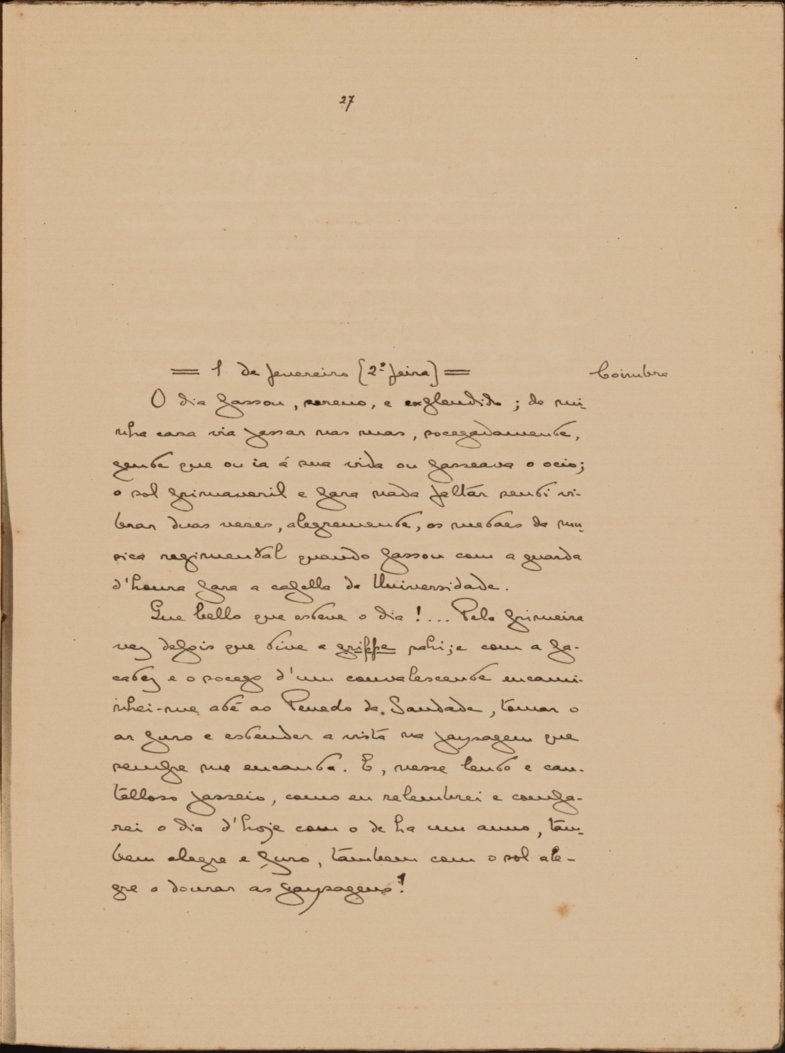 27
= 1 de fevereiro (2ª feira) = Coimbra
O dia passou, sereno, e explendido; de mi-
nha casa via passar nas ruas, socegadamente,
gente que ou ia á sua vida ou passeava o ocio;
o sol primaveril e para nada faltar senti vi-
brar duas vezes, alegremente, os metaes da mu-
sica regimental quando passou com a guarda
d'honra para a capella da Universidade.
Que bello que esteve o dia!... Pela primeira
vez depois que tive a grippe sahi; e com a pa-
catez e o socego d'um convalescente encami-
nhei-me até ao Penedo da Saudade, tomar o
ar puro e estender a vista na paysagem que
sempre me encanta. E, nesse lento e cau-
telloso passeio, como eu relembrei e compa-
rei o dia d'hoje com o de ha um anno, tam-
bem alegre e puro, tambem com o sol ale-
gre a dourar as paysagens!